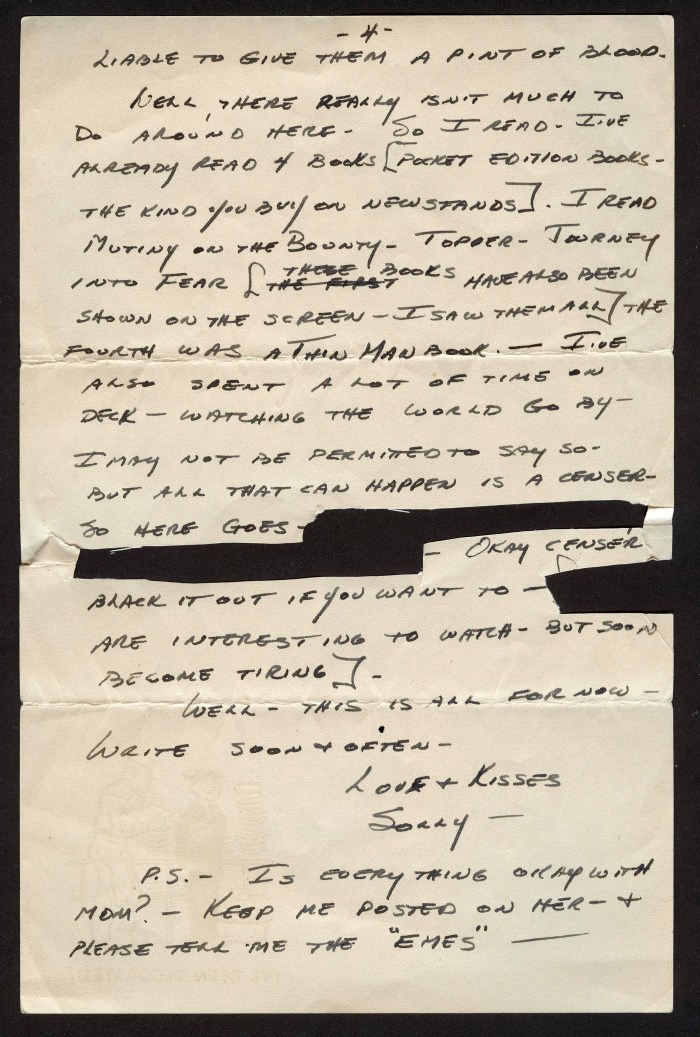 - 4 -
LIABLE TO GIVE THEM A PINT OF BLOOD.
WELL, THERE REALLY ISN'T MUCH TO
DO AROUND HERE - SO I READ - I'VE
ALREADY READ 4 BOOKS [POCKET EDITION BOOKS -
THE KIND YOU BUY ON NEWSTANDS]. I READ
MUTINY ON THE BOUNTY - TOPPER - JOURNEY
INTO FEAR [THE FIRST THESE BOOKS HAVE ALSO BEEN
SHOWN ON THE SCREEN - I SAW THEM ALL] THE
FOURTH WAS A THIN MAN BOOK. - I'VE
ALSO SPENT A LOT OF TIME ON
DECK - WATCHING THE WORLD GO BY -
I MAY NOT BE PERMITTED TO SAY SO -
BUT ALL THAT CAN HAPPEN IS A CENSER -
SO HERE GOES -
- OKAY CENSER
BLACK IT OUT IF YOU WANT TO - [
ARE INTERESTING TO WATCH - BUT SOON
BECOME TIRING] -
WELL - THIS IS ALL FOR NOW -
WRITE SOON & OFTEN -
LOVE & KISSES
SOLLY -
P.S. - IS EVERYTHING OKAY WITH
MOM? - KEEP ME POSTED ON HER - &
PLEASE TELL ME THE "EMES" -